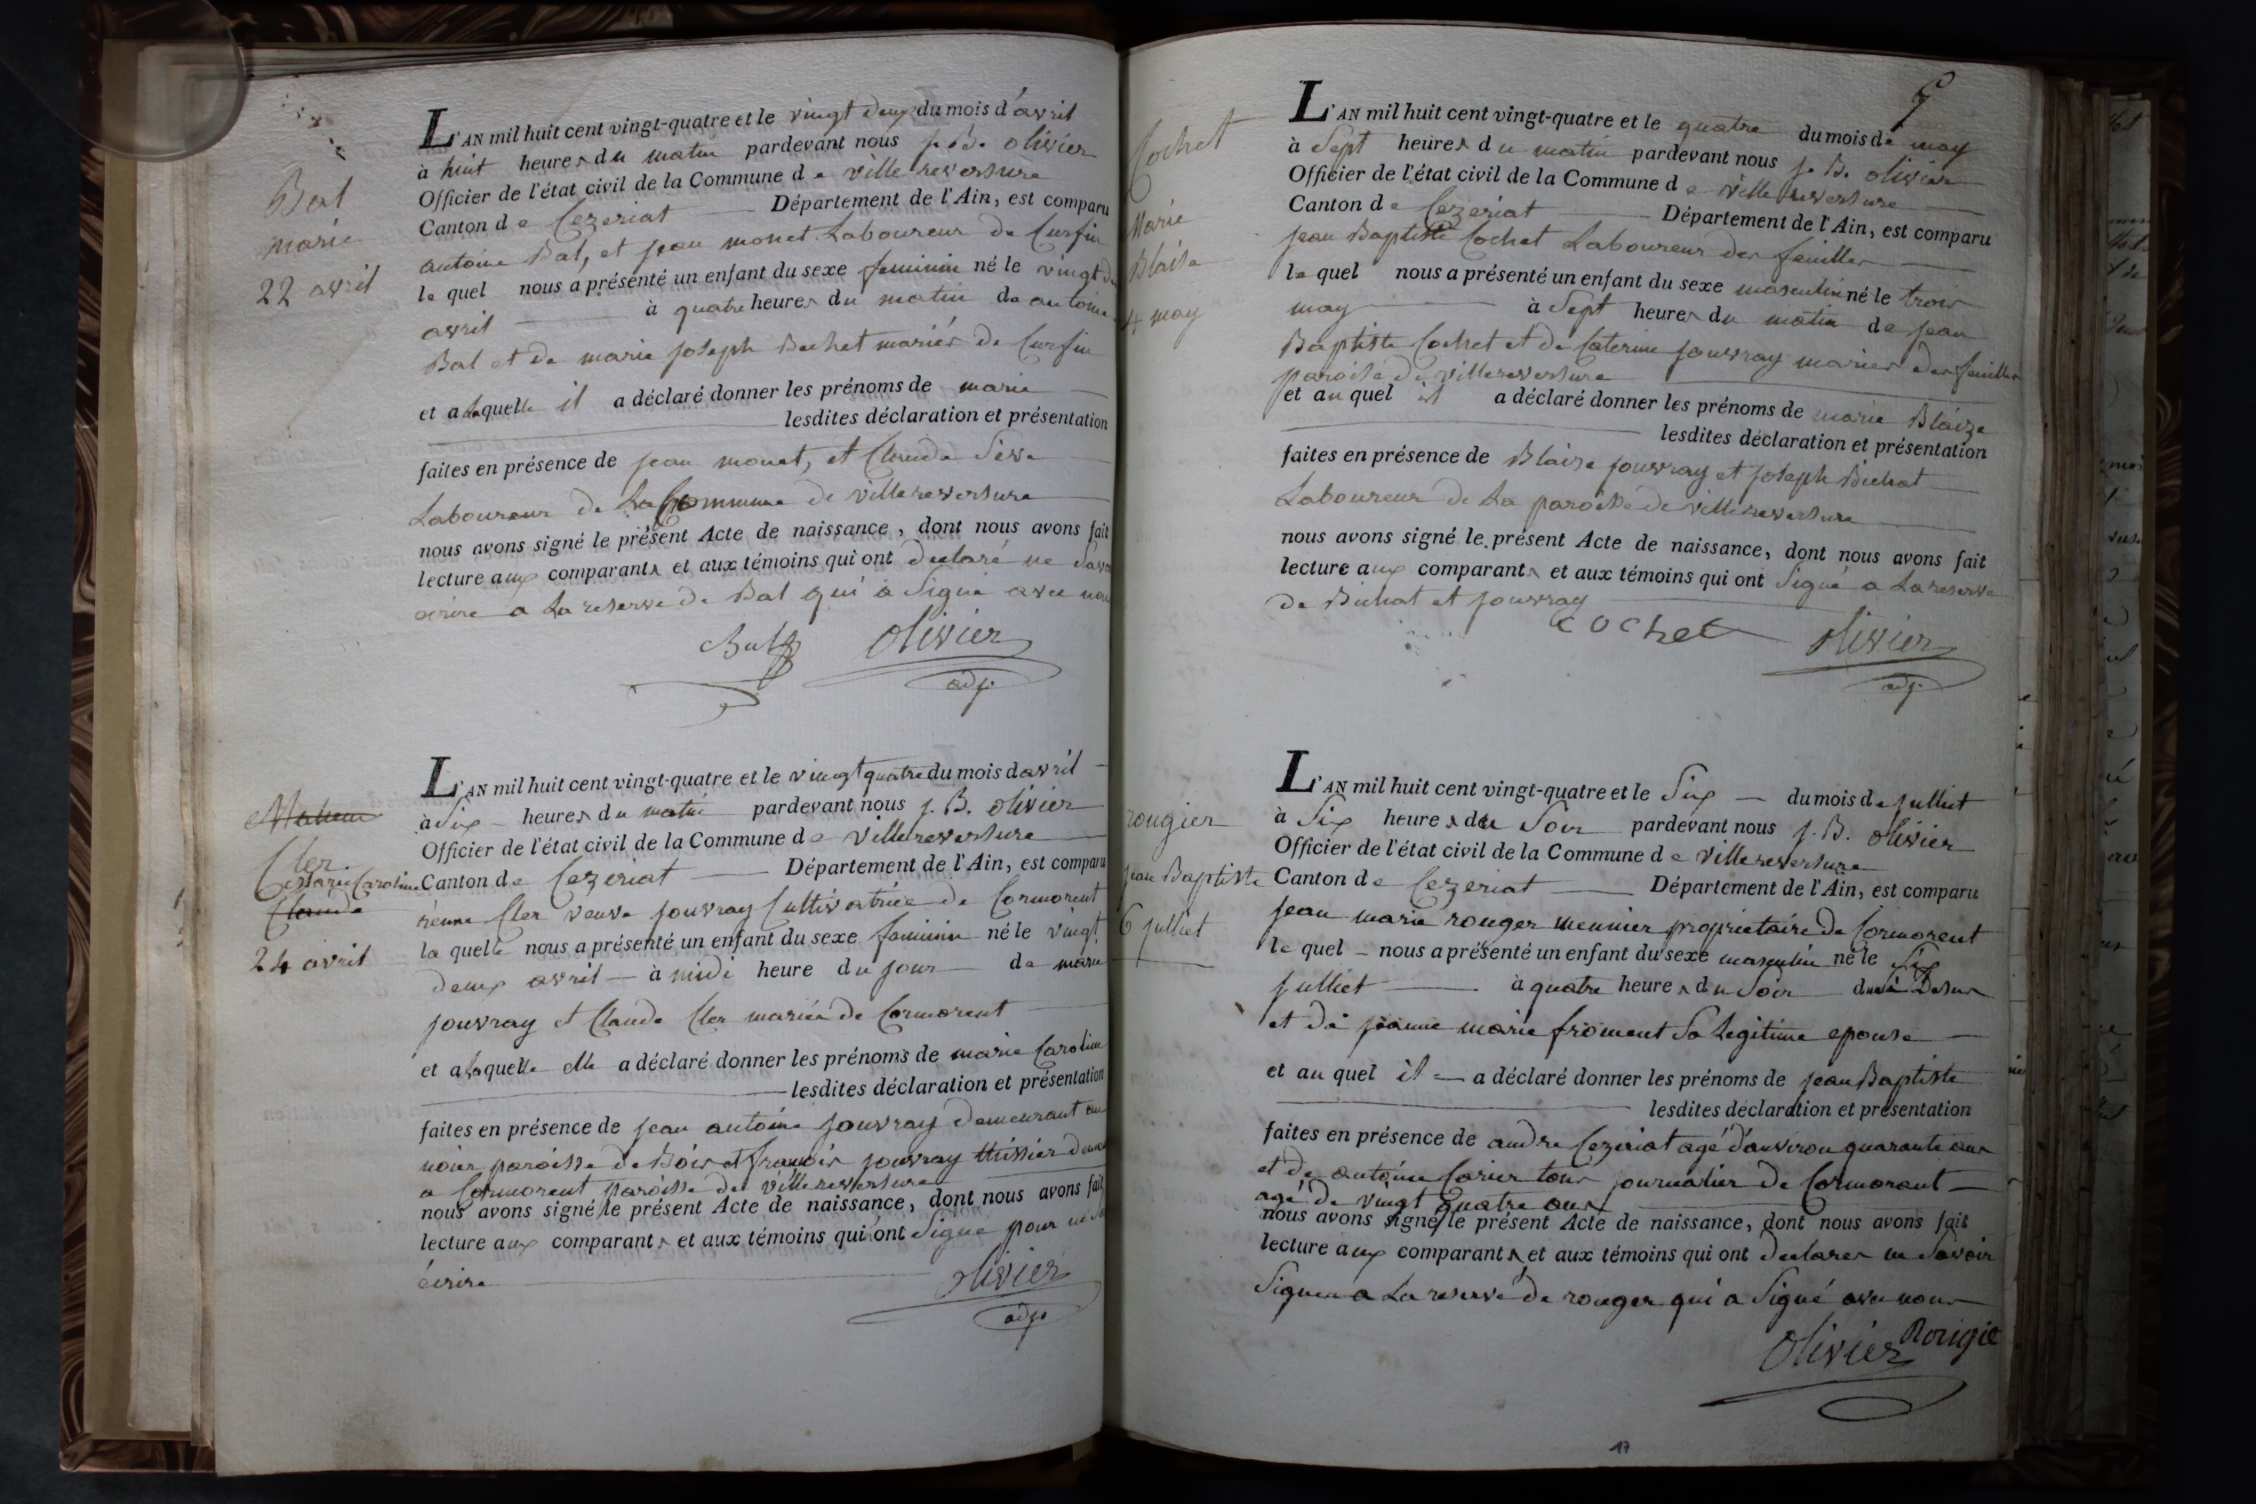 Bal
marie
22 avril
L'AN mil huit cent vingt-quatre et le vingt deux du mois d'avril
à huit heures du matin pardevant nous J. B. olivier
Officier de l'état civil de la Commune de villereversure
Canton de Cezeriat Département de l'Ain, est comparu
antoine Bal, et jean monet Laboureur de Curfin
le quel nous a présenté un enfant du sexe feminin né le vingt
avril à quatre heures du matin de antoine
Bal et de marie joseph Bechet mariés de Curfin
et a laquelle il a déclaré donner les prénoms de marie
lesdites déclaration et présentation
faites en présence de jean monet, et Claude
Laboureur de La Commune de villereversure
nous avons signé le présent Acte de naissance, dont nous avons fait
lecture aux comparants et aux témoins qui ont declaré ne
ecrire a La reserve de Bal qui a Signé avec nous
Bal olivier
adj.
Cler
Marie Caroline
Claude
24 avril
L'AN mil huit cent vingt-quatre et le vingt quatre du mois d avril
à Six heures du matin pardevant nous J. B. olivier
Officier de l'état civil de la Commune de Villereversure
Canton de Cezeriat Département de l'Ain, est comparu
Cler veuve jouvray Cultivatrice de Cormorent
la quelle nous a présenté un enfant du sexe feminin né le vingt
deux avril à midi heure du jour de marie
jouvray et Claude Cler mariés de Cormorent
et a laquelle elle a déclaré donner les prénoms de marie Caroline
lesdites déclaration et présentation
faites en présence de jean antoine jouvray demeurant au
noier paroisse de Bois et françois jouvray
a Cormorent paroisse de villereversure
nous avons signé le présent Acte de naissance, dont nous avons fait
lecture aux comparants et aux témoins qui ont Signé pour ne
écrire
olivier
adj.
Cochet
Marie
Blaise
4 may
L'AN mil huit cent vingt-quatre et le quatre du mois de may
à Sept heures du matin pardevant nous J. B. olivier
Officier de l'état civil de la Commune de villereversure
Canton de Cezeriat Département de l'Ain, est comparu
jean Baptiste Cochet Laboureur des feuilles
le quel nous a présenté un enfant du sexe masculin né le trois
may à Sept heures du matin de jean
Baptiste Cochet et de Caterine jouvray mariés des feuilles
paroisse de villereversure
et au quel il a déclaré donner les prénoms de marie Blaize
lesdites déclaration et présentation
faites en présence de Blaise jouvray et joseph Bichat
Laboureur de La paroisse de villereversure
nous avons signé le présent Acte de naissance, dont nous avons fait
lecture aux comparants et aux témoins qui ont Signé a La reserve
de Bichat et jouvray
COchet olivier
adj.
rougier
jean Baptiste
6 julliet
L'AN mil huit cent vingt-quatre et le Six du mois de julliet
à Six heures du Soir pardevant nous J. B. olivier
Officier de l'état civil de la Commune de villereversure
Canton de Cezeriat Département de l'Ain, est comparu
jean marie rouger meunier proprietaire de Cormorent
le quel nous a présenté un enfant du sexe masculin né le Six
julliet à quatre heures du Soir
et de jeanne marie froment Sa Legitime epouse
et au quel il a déclaré donner les prénoms de jean Baptiste
lesdites déclaration et présentation
faites en présence de andre Cezeriat agé d'anviron quarante ans
et de antoine Carier tous journalier de Cormorant
agé de vingt quatre ans
nous avons signé le présent Acte de naissance, dont nous avons fait
lecture aux comparants et aux témoins qui ont declarer ne Savoir
Signer a La reserve de rouger qui a Signé avec nous
olivier Rougie
17